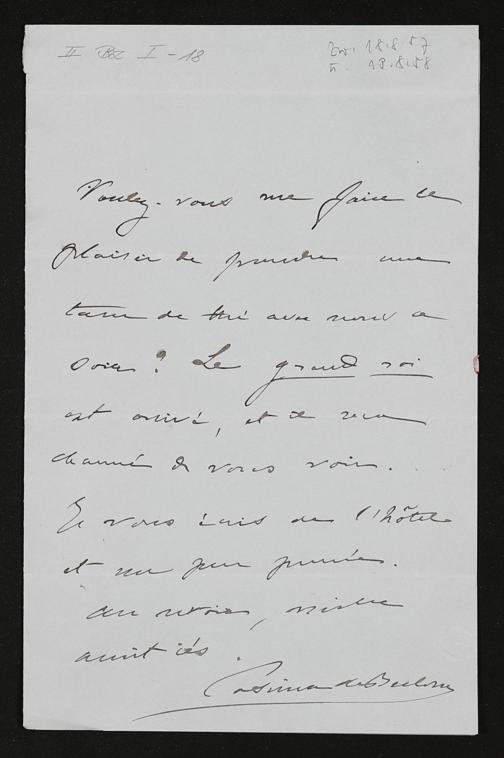 II Bz I - 18
Zw. 18.8.57
n. 18.8.58
Voulez-vous me faire le
plaisir de prendre une
tasse de thé avec nous ce
soir? Le grand roi
est arrivé, et il sera
charmé de vous voir.
Je vous écris de l'hôtel
et un peu pressée.
Au revoir, mille
amitiés.
Cosima de Bulow